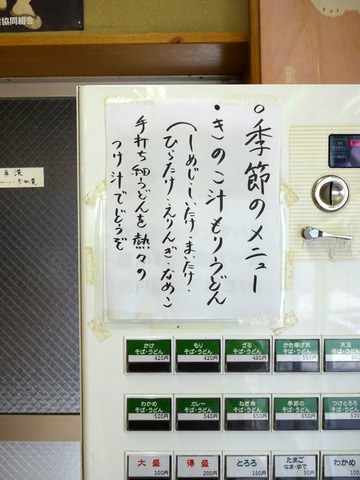 協同組合
。季節のメニュー
・きのこ汁もりうどん
(しめじ・しいたけ・まいたけ・
ひらたけ・えりんぎ・なめこ)
手打ち細うどんを熱々の
つけ汁でどうぞ
かけ
そば・うどん
420円
もり
そば・うどん
420円
ざる
そば・うどん
かき揚げ天
そば・うどん
天玉
そば・うどん
わかめ
そば・うどん
520円
カレー
そば・うどん
540円
ねぎ肉
そば・うどん
季節の
そば・うどん
つけとろろ
そば・うどん
大盛
100円
得盛
200円
とろろ
160円
たまご
なま・ゆで
わかめ
100円